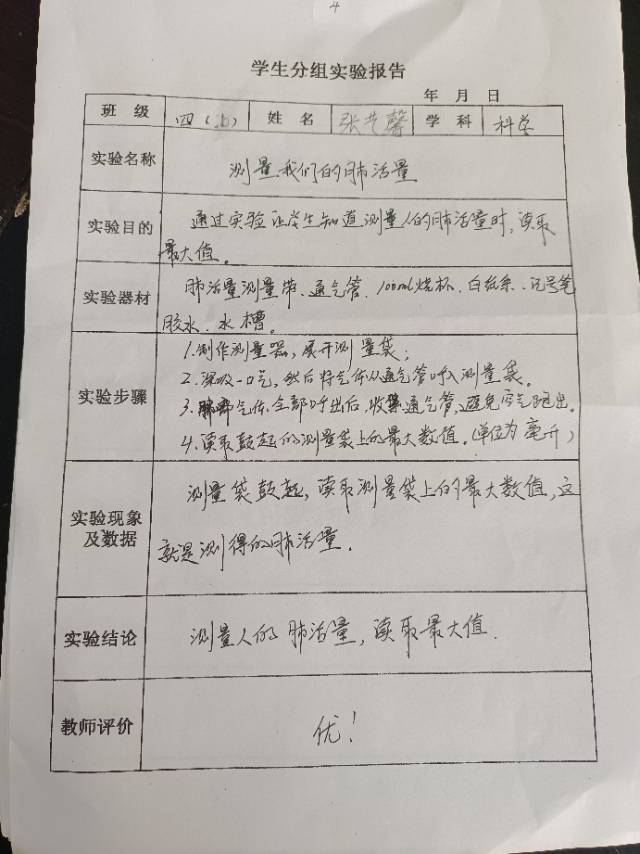 4
学生分组实验报告
年 月 日
班 级 四( ) 姓 名 张艺馨 学 科 科学
实验名称 测量我们的肺活量
实验目的 通过实验让学生知道测量人的肺活量时,读取
最大值。
实验器材 肺活量测量带、通气管、100ml烧杯、白纸条、记号笔
胶水、水槽。
实验步骤 1.制作测量器,展开测量袋;
2.深吸一口气,然后将气体从通气管呼入测量袋。
3.肺部气体全部呼出后,收紧通气管,避免空气跑出。
4.读取鼓起的测量袋上的最大数值。(单位为毫升)
实验现象及数据 测量袋鼓起,读取测量袋上的最大数值,这
就是测得的肺活量。
实验结论 测量人的肺活量,读取最大值.
教师评价 优!